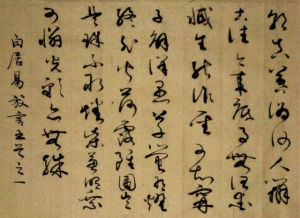 朝真暮偽何人辨
古往今来底事無但愛
臧生能詐聖可知甯
子解佯愚草螢有耀
終非火荷露雖團豈
是珠不取燔柴兼照乘
可憐光彩亦無殊
白居易放言五首之一